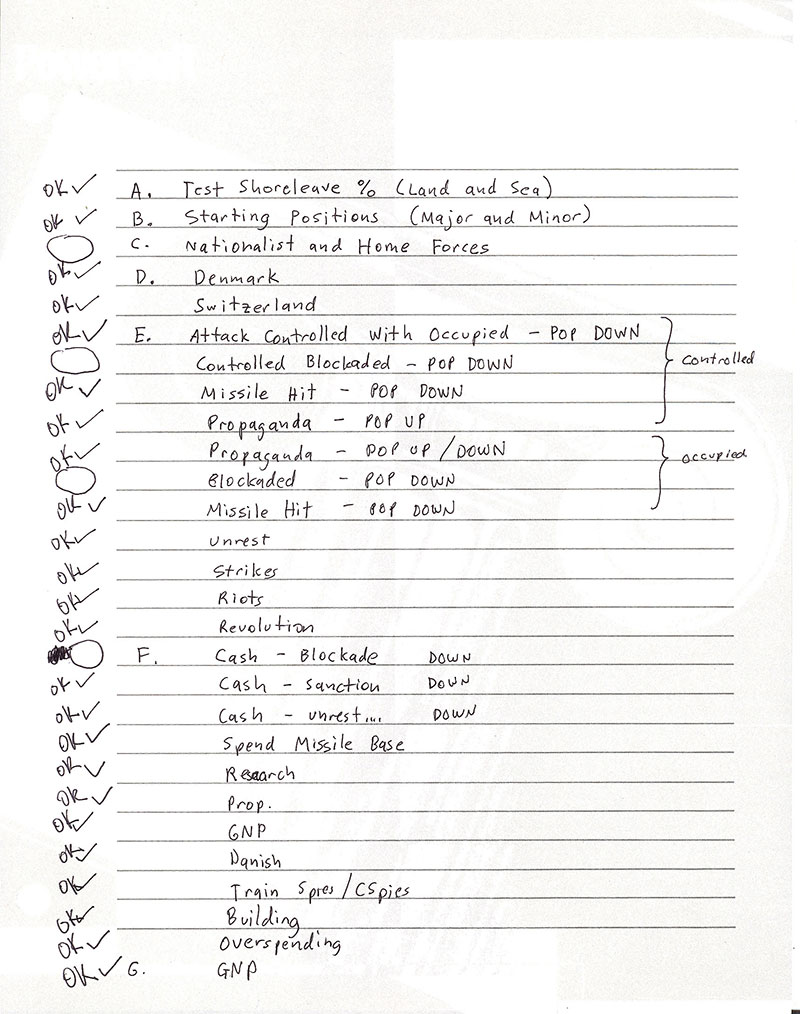 OK ✓ A. Test Shoreleave % (Land and Sea)
OK ✓ B. Starting Positions (Major and Minor)
C. Nationalist and Home Forces
OK ✓ D. Denmark
OK ✓ Switzerland
OK ✓ E. Attack Controlled With Occupied - POP DOWN
Controlled Blockaded - POP DOWN
Controlled
OK ✓ Missile Hit - POP DOWN
OK ✓ Propaganda - POP UP
OK ✓ Propaganda - POP UP / DOWN
Occupied
Blockaded - POP DOWN
OK ✓ Missile Hit - POP DOWN
OK ✓ Unrest
OK ✓ Strikes
OK ✓ Riots
OK ✓ Revolution
F. Cash - Blockade DOWN
OK ✓ Cash - Sanction DOWN
OK ✓ Cash - Unrest.... DOWN
OK ✓ Spend Missile Base
OK ✓ Research
OK ✓ Prop.
OK ✓ GNP
OK ✓ Danish
OK ✓ Train Spies / CSpies
OK ✓ Building
OK ✓ Overspending
OK ✓ G. GNP